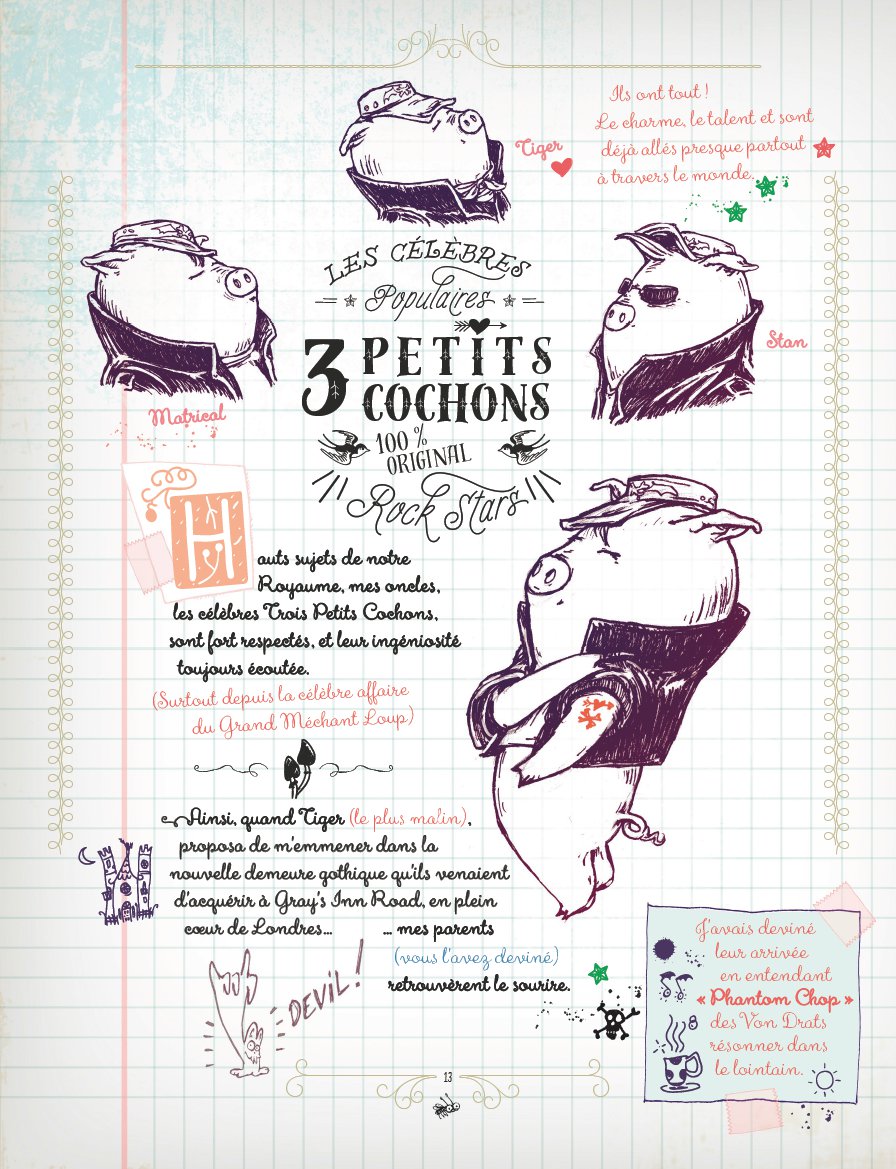 Ils ont tout !
Le charme, le talent et sont
déjà allés presque partout
à travers le monde.
Tiger
LES CÉLÈBRES
Populaires
3 PETITS
COCHONS
100 %
ORIGINAL
Rock Stars
Stan
Matrical
Hauts sujets de notre
Royaume, mes oncles,
les célèbres Trois Petits Cochons,
sont fort respectés, et leur ingéniosité
toujours écoutée.
(Surtout depuis la célèbre affaire
du Grand Méchant Loup)
Ainsi, quand Tiger (le plus malin),
proposa de m'emmener dans la
nouvelle demeure gothique qu'ils venaient
d'acquérir à Gray's Inn Road, en plein
cœur de Londres... ... mes parents
(vous l'avez deviné)
retrouvèrent le sourire.
DEVIL !
J'avais deviné
leur arrivée
en entendant
« Phantom Chop »
des Von Drats
résonner dans
le lointain.
13